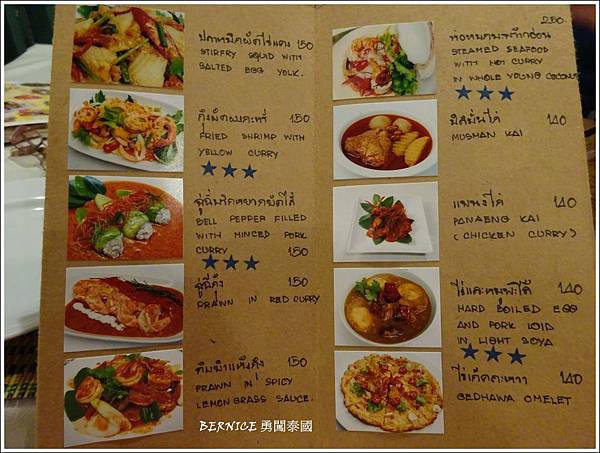 ปลาหมึกผัดไข่แดง 150
STIRFRY SQUID WITH
SALTED EGG YOLK.
กุ้งผัดผงกะหรี่ 150
FRIED SHRIMP WITH
YELLOW CURRY
BELL PEPPER FILLED
WITH MINCED PORK
CURRY
150
ฉู่ฉี่กุ้ง 150
PRAWN IN RED CURRY
150
PRAWN IN SPICY
LEMONGRASS SAUCE.
250.
ห่อหมกมะพร้าวอ่อน
STEAMED SEAFOOD
WITH HOT CURRY
IN WHOLE YOUNG COCONUT
มัสมั่นไก่ 140
MUSMAN KAI
แพนงไก่ 140
PANAENG KAI
(CHICKEN CURRY)
ไข่และหมูพะโล้ 140
HARD BOILED EGG
AND PORK LOID
IN LIGHT SOYA
140
GEDHAWA OMELET
BERNICE 勇闖泰國